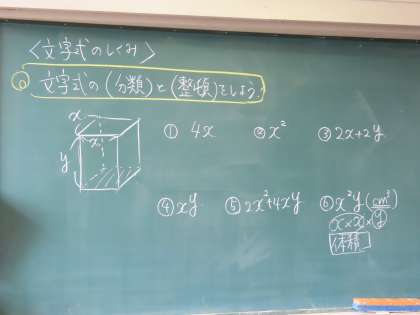 〈文字式のしくみ〉
◎ 文字式の(分類)と(整頓)をしよう。
x
x
y
① 4x
② x²
③ 2x+2y
④ xy
⑤ 2x²+4xy
⑥ x²y (cm³)
x×x×y
体積